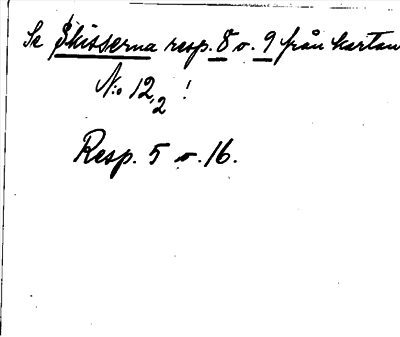 Se Skisserna resp. 8 o. 9 från kartan
N:o 12,2 !
Resp. 5 o. 16.